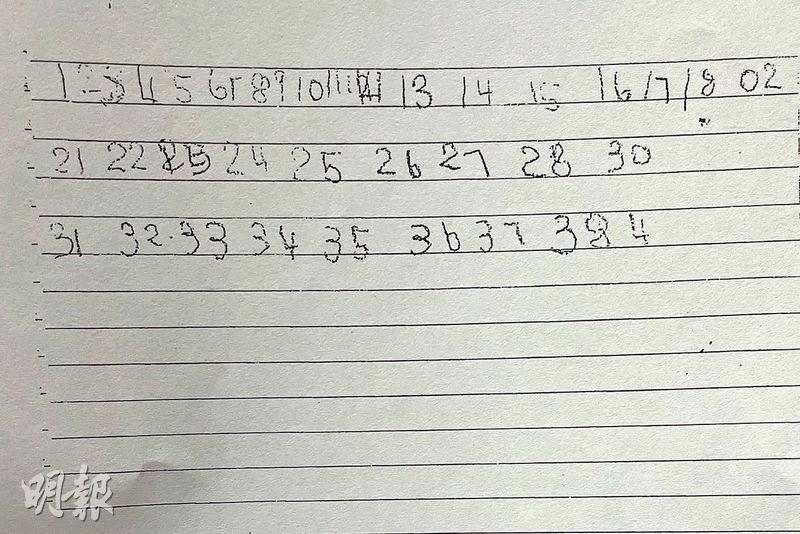 1 2 3 4 5 6 7 8 9 10 11 12 13 14 15 16 17 18 02
21 22 23 24 25 26 27 28 30
31 32 33 34 35 36 37 38 4
明報